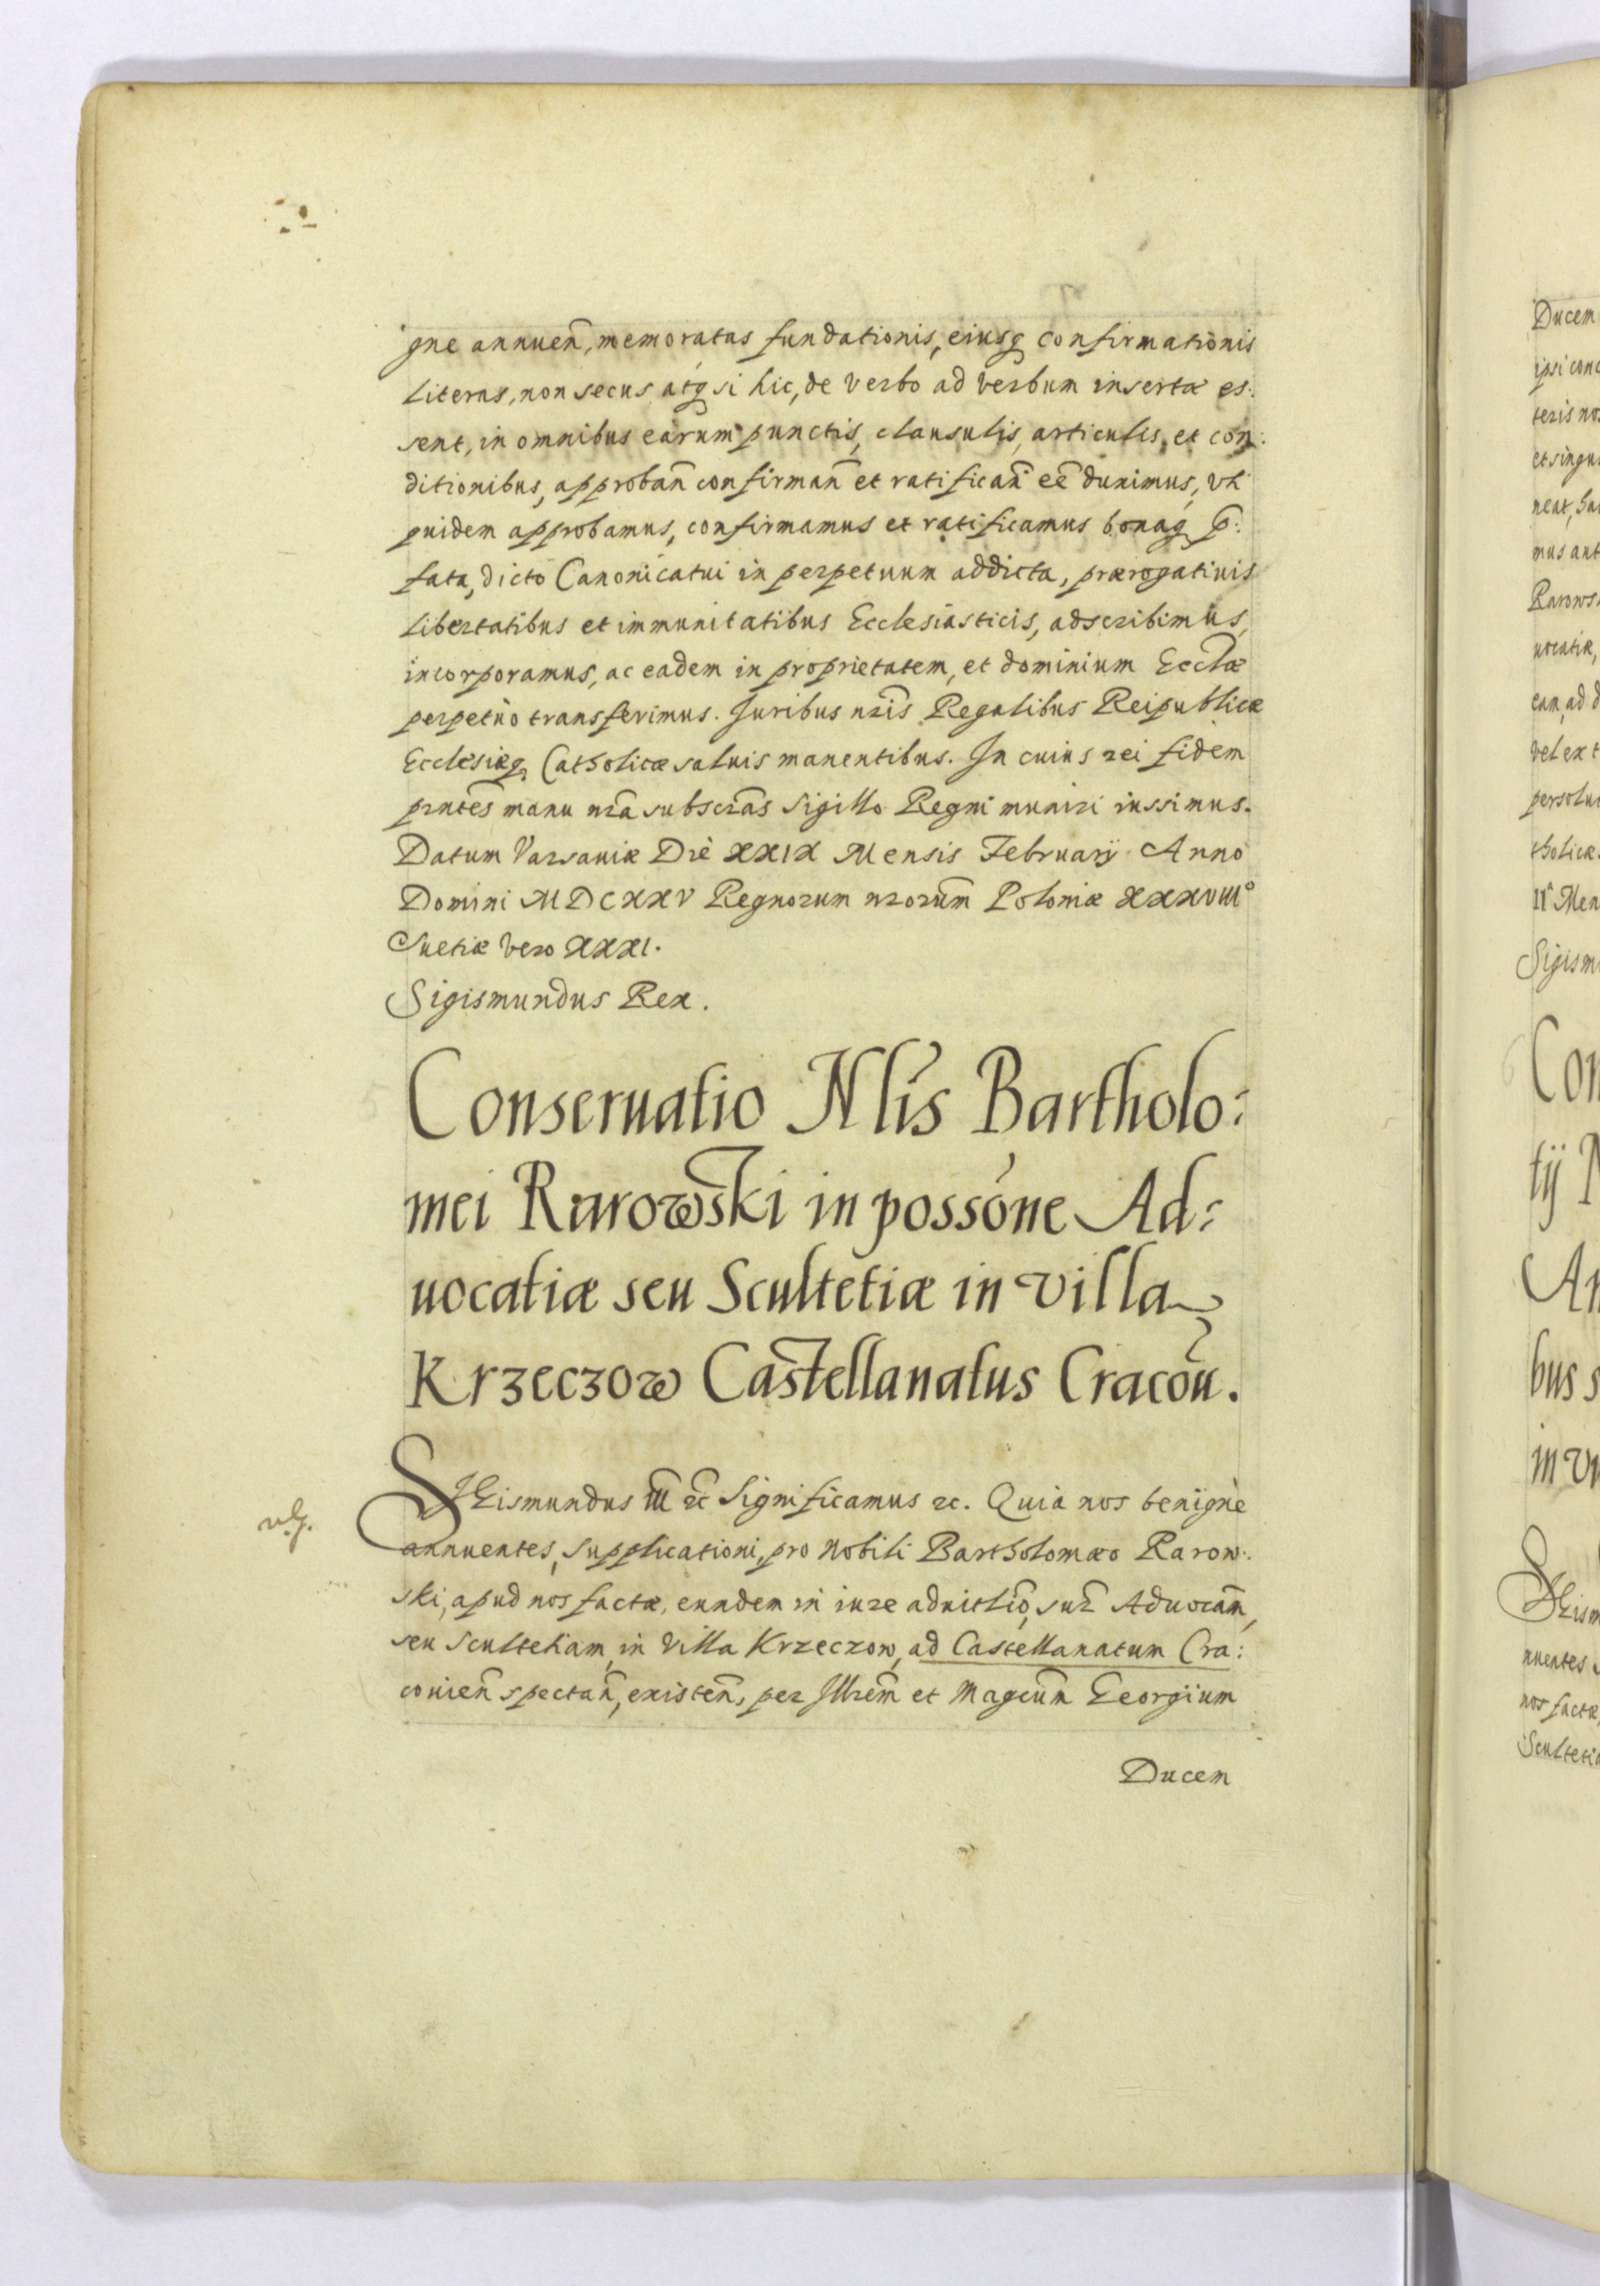 gne annueñ, memoratas fundationis, eiusq confirmationis
literas, non secus atq si hic, de verbo ad verbum insertæ es:
sent, in omnibus earum punctis, clausulis, articulis, et con:
ditionibus, approbañ confirmañ et ratificañ eē duximus, vti
quidem approbamus, confirmamus et ratificamus bonaq p̃:
fata, dicto Canonicatui in perpetuum addicta, prærogatiuis
libertatibus et immunitatibus Ecclesiasticis, adscribimus,
incorporamus, ac eadem in proprietatem, et dominium Eccl̃æ
perpetuò transferimus. Juribus nr̃is Regalibus Reipublicæ
Ecclesiæq Catholicæ saluis manentibus. In cuius rei fidem
prntẽs manu nrã subscrãs Sigillo Regni muniri iussimus.
Datum Varsauiæ Diè XXIX Mensis Februarij Anno
Domini MDCXXV Regnorum nrorũm Poloniæ XXXVIII°
Suetiæ vero XXXI.
Sigismundus Rex.
Conseruatio Nlis Bartholo:
mei Rarowski in possõne Ad:
uocatiæ seu Scultetiæ in villa
Krzeczow Castellanatus Cracou̅.
SIGismundus III rc̃ Significamus rc. Quia nos benignè
annuentes, supplicationi, pro Nobili Bartholomæo Rarow:
ski, apud nos factæ, eundem in iure aduitlio, sup̃ Aduocãm,
seu Scultetiam, in Villa Krzeczow, ad Castellanatum Cra:
couień spectañ, existeñ, per Illrẽm et Magcũm Georgium
Ducem
Ducem
ipsi conc
teris nos
et singu
neat, ha
mus aut
Rarows
uocatiæ,
eam, ad d
vel ex t
persolu
tholicæ
II° Men
Sigism
Con
tij N
An
bus s
in Vi
SIGism
nuentes
nos factæ,
Scultetia